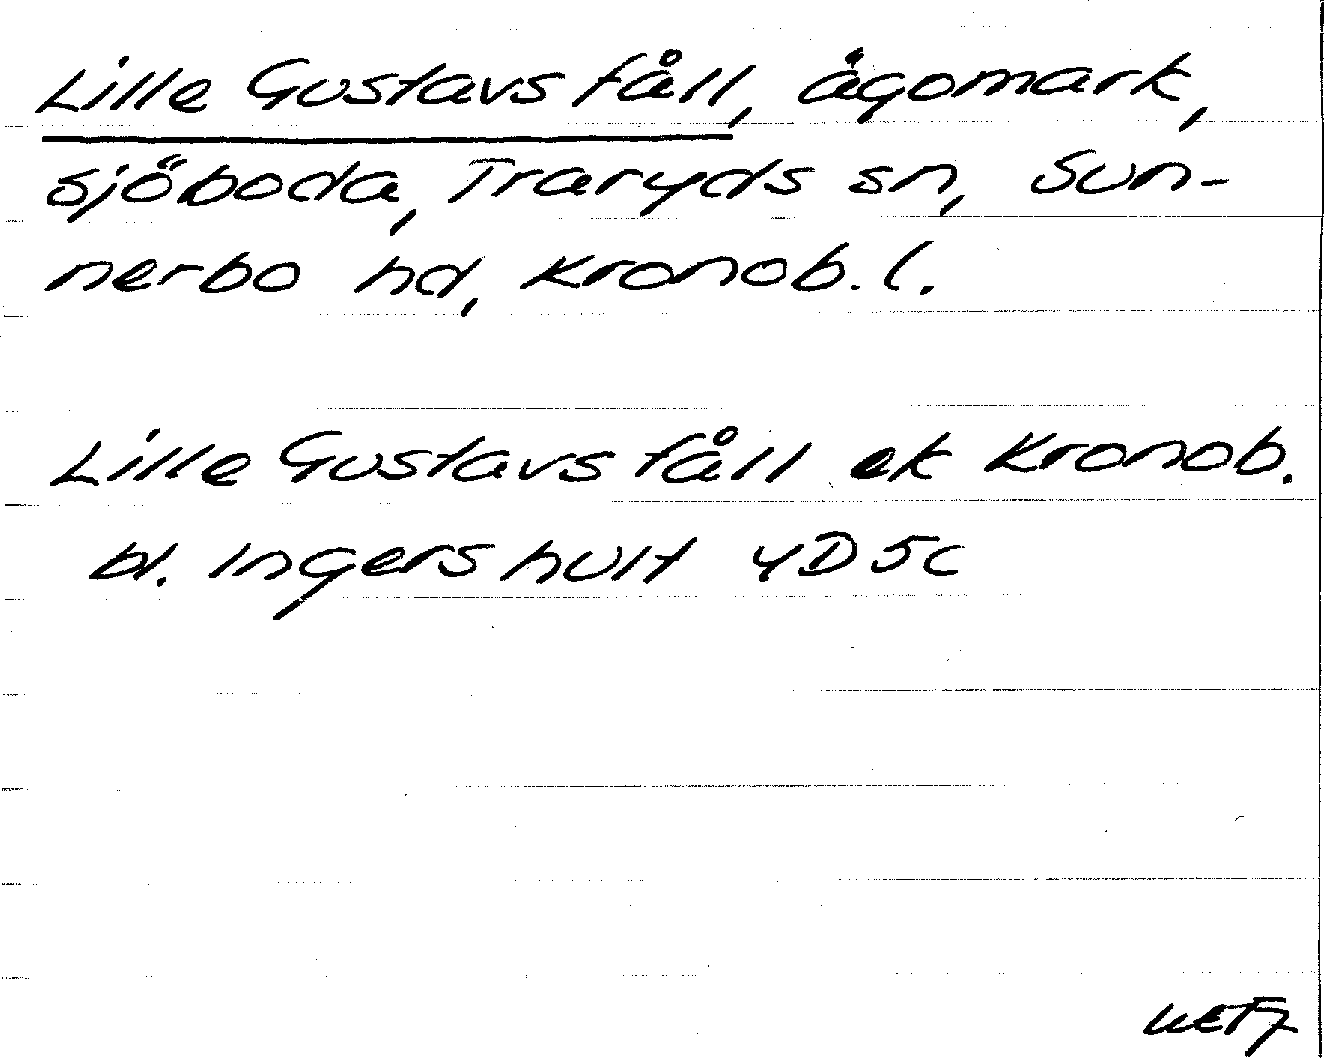 Lille Gustavs fåll, ägomark,
sjöboda, Traryds sn, Sun-
nerbo hd, Kronob. l.
Lille Gustavs fåll ek Kronob.
bl. Ingershult 4D5c